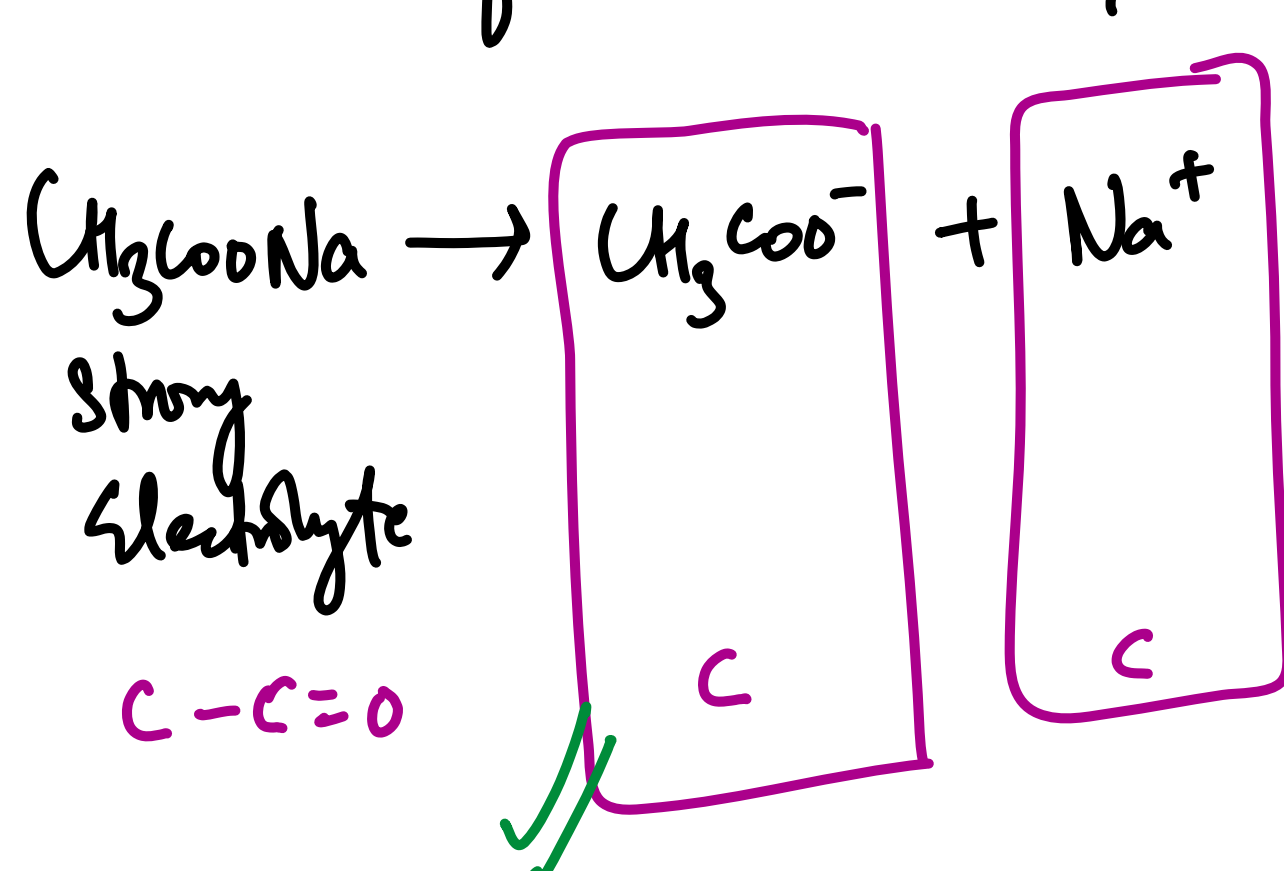 CH₃COONa → CH₃COO⁻ + Na⁺
Strong
Electrolyte
C - C = 0 C C